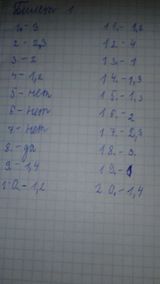 Билет 1
1-3
2-2,3
3-2
4-1,2
5-нет
6-нет
7-нет
8.-да
9.-1,4
10.-1,2
11.-1,2
12.-4
13.-1
14.-1,3
15.-1,3
16.-2
17.-2,3
18.-3.
19.-1
20.-1,4